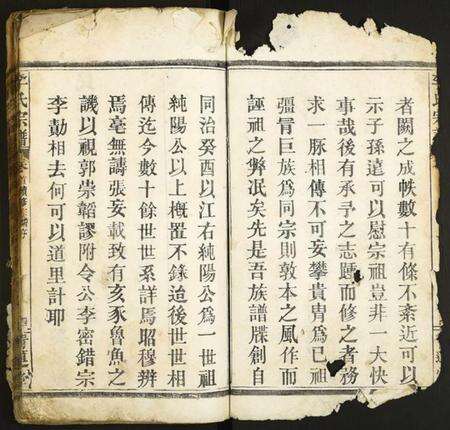 者闕之成帙數十有條不紊近可以
示子孫遠可以慰宗祖豈非一大快
事哉後有承予之志踵而修之者務
求一脈相傳不可妄攀貴冑爲已祖
彊冒巨族爲同宗則敦本之風作而
誣祖之弊泯矣先是吾族譜牒創自
同治癸酉以江右純陽公爲一世祖
純陽公以上槪置不錄迨後世世相
傳迄今數十餘世世系詳焉昭穆辨
焉毫無譸張妄載致有亥豕魯魚之
譏以視郭崇韜謬附令公李密錯宗
李勣相去何可以道里計耶
氏宗譜
氏宗